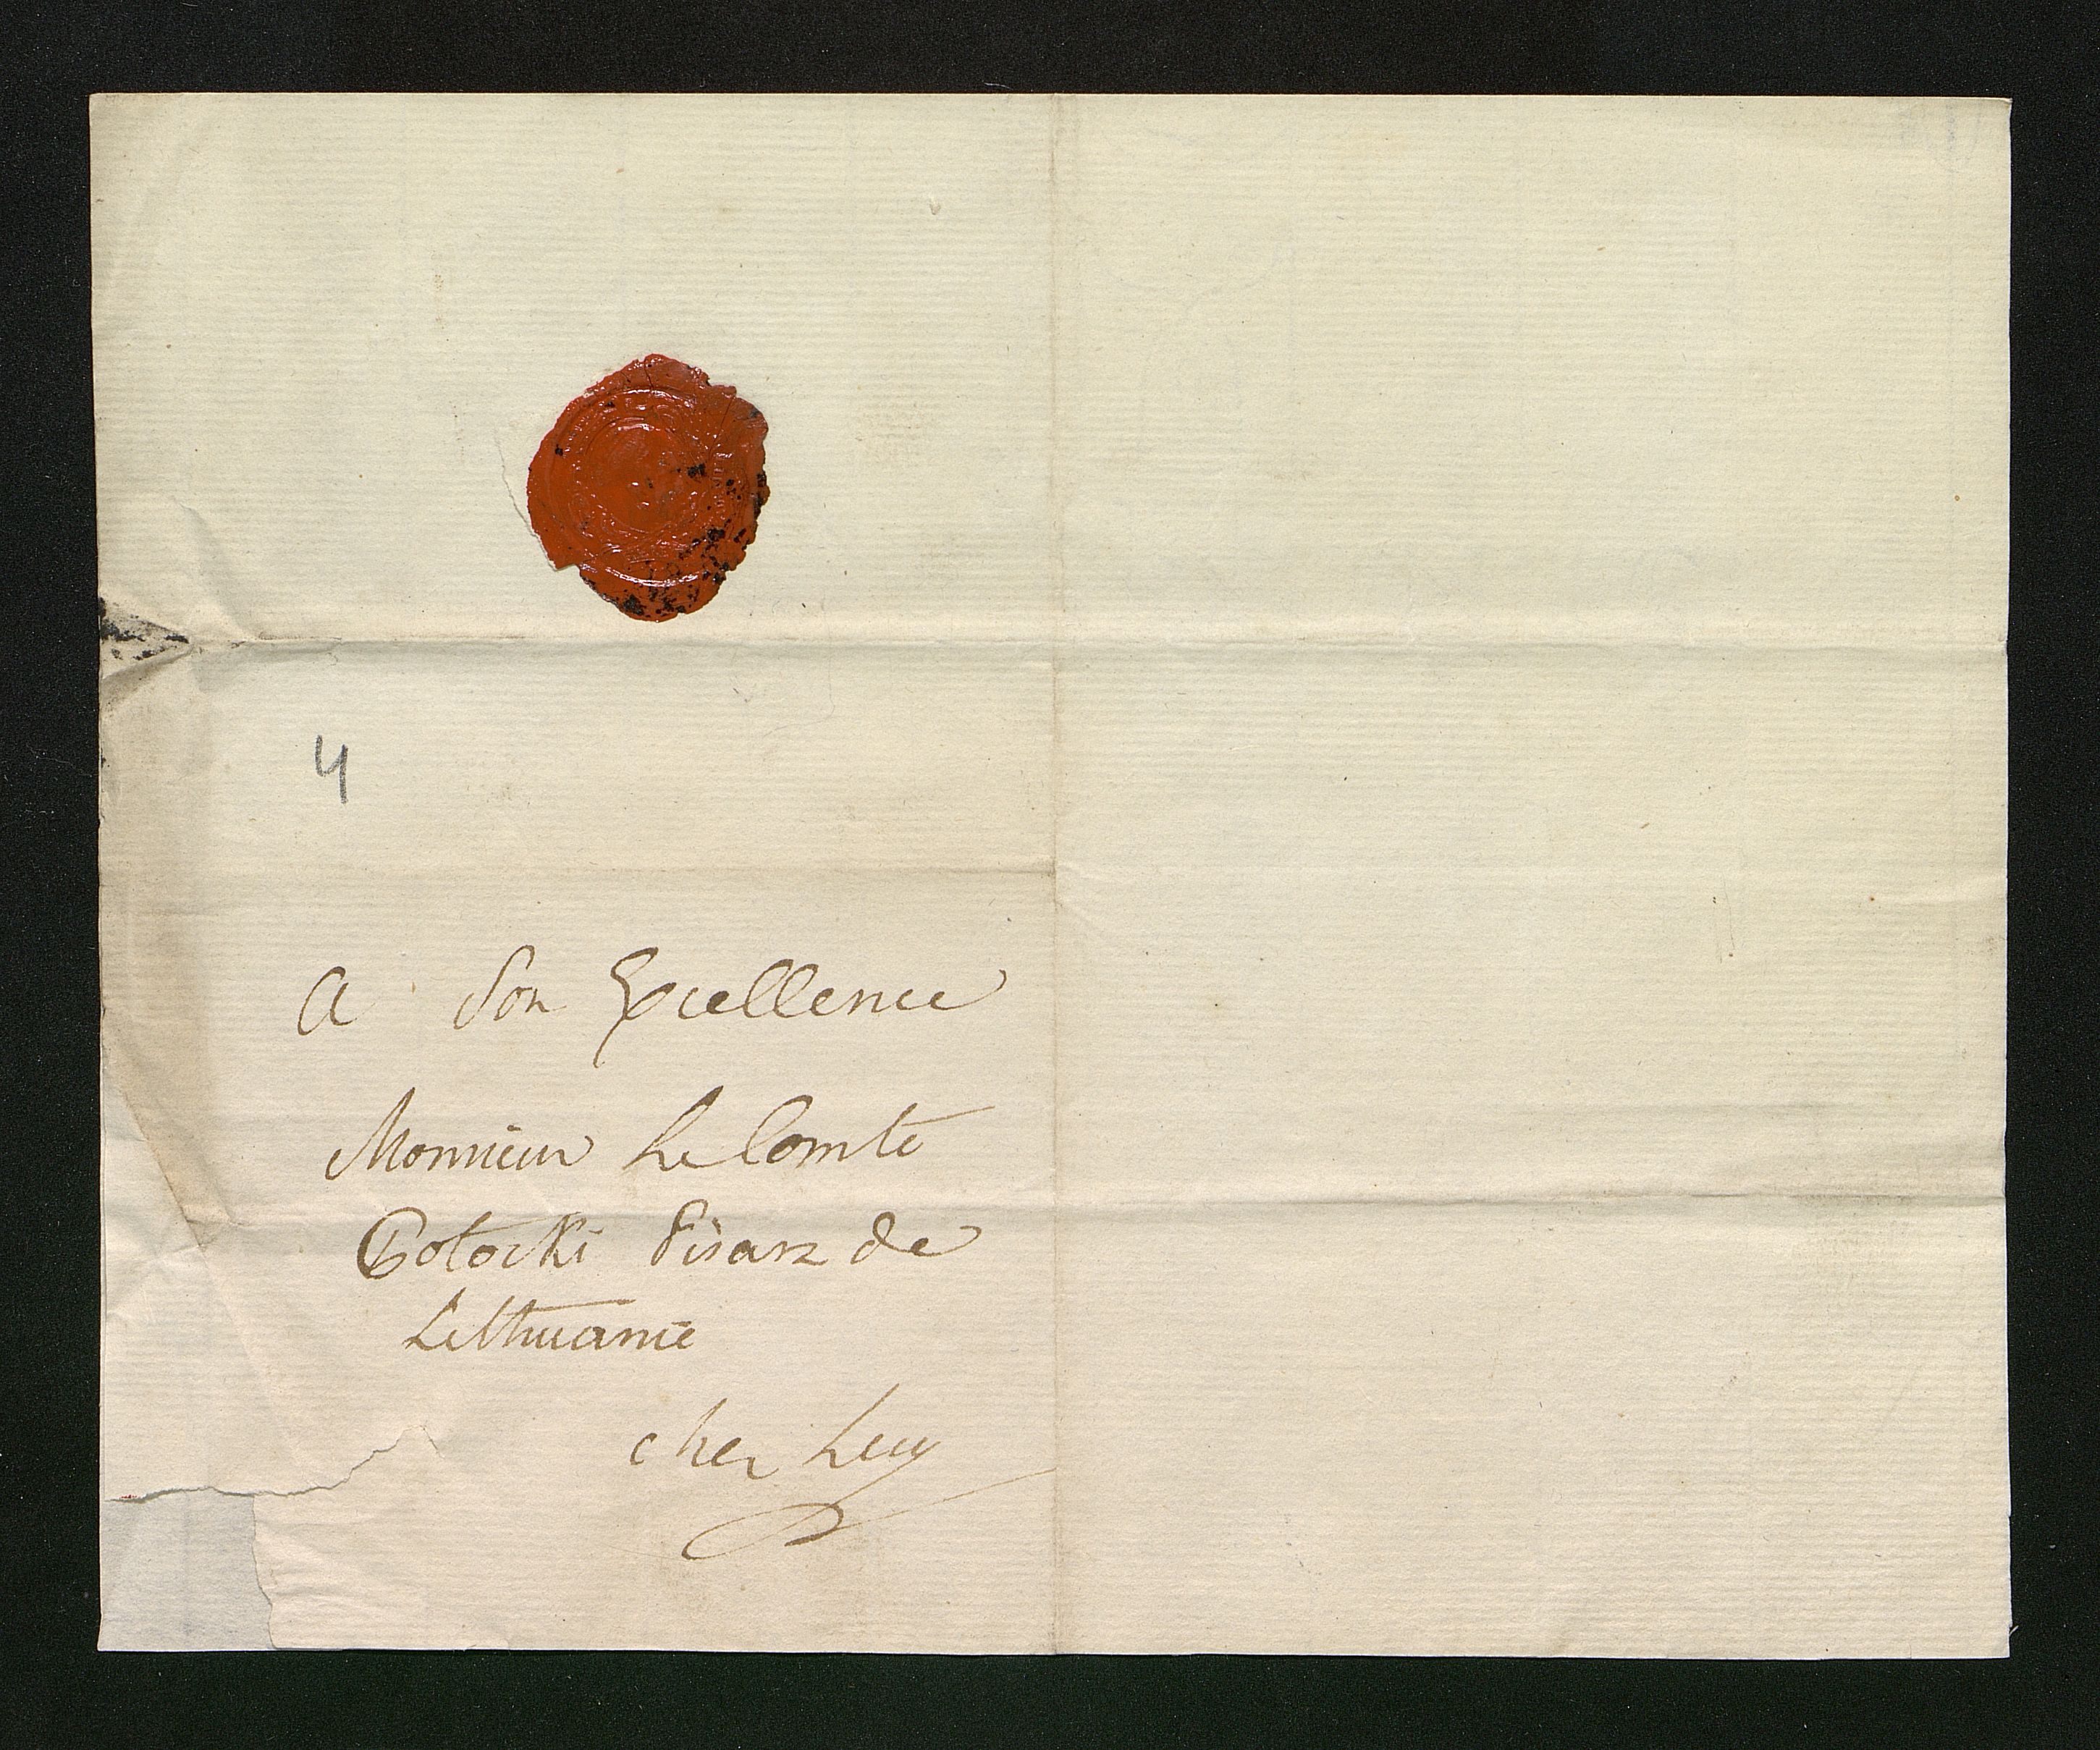 4
A Son Excellence
Monsieur Le Comte
Potocki Pisarz de
Lithuanie
chez Luy